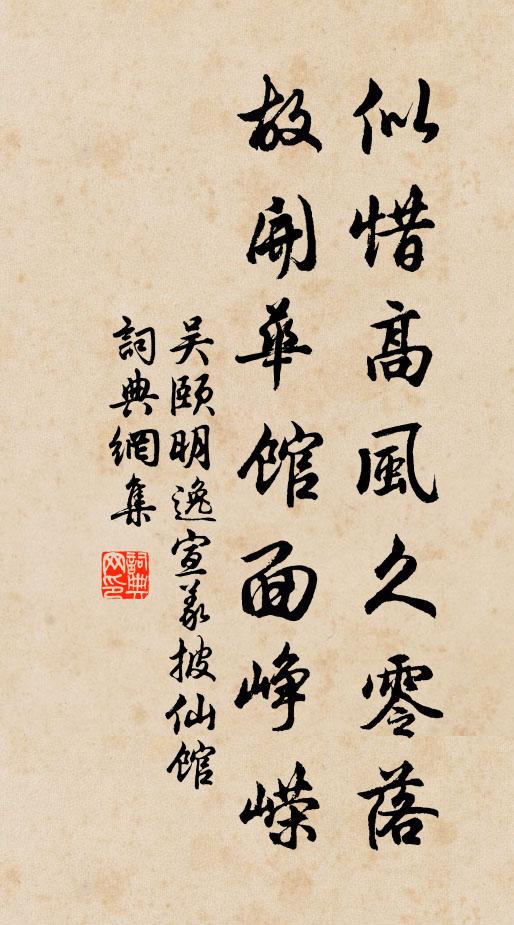 似惜高風久零落
故開華館面崢嶸
吴頤明逸宣義披仙館
詞典網集
詞典网印